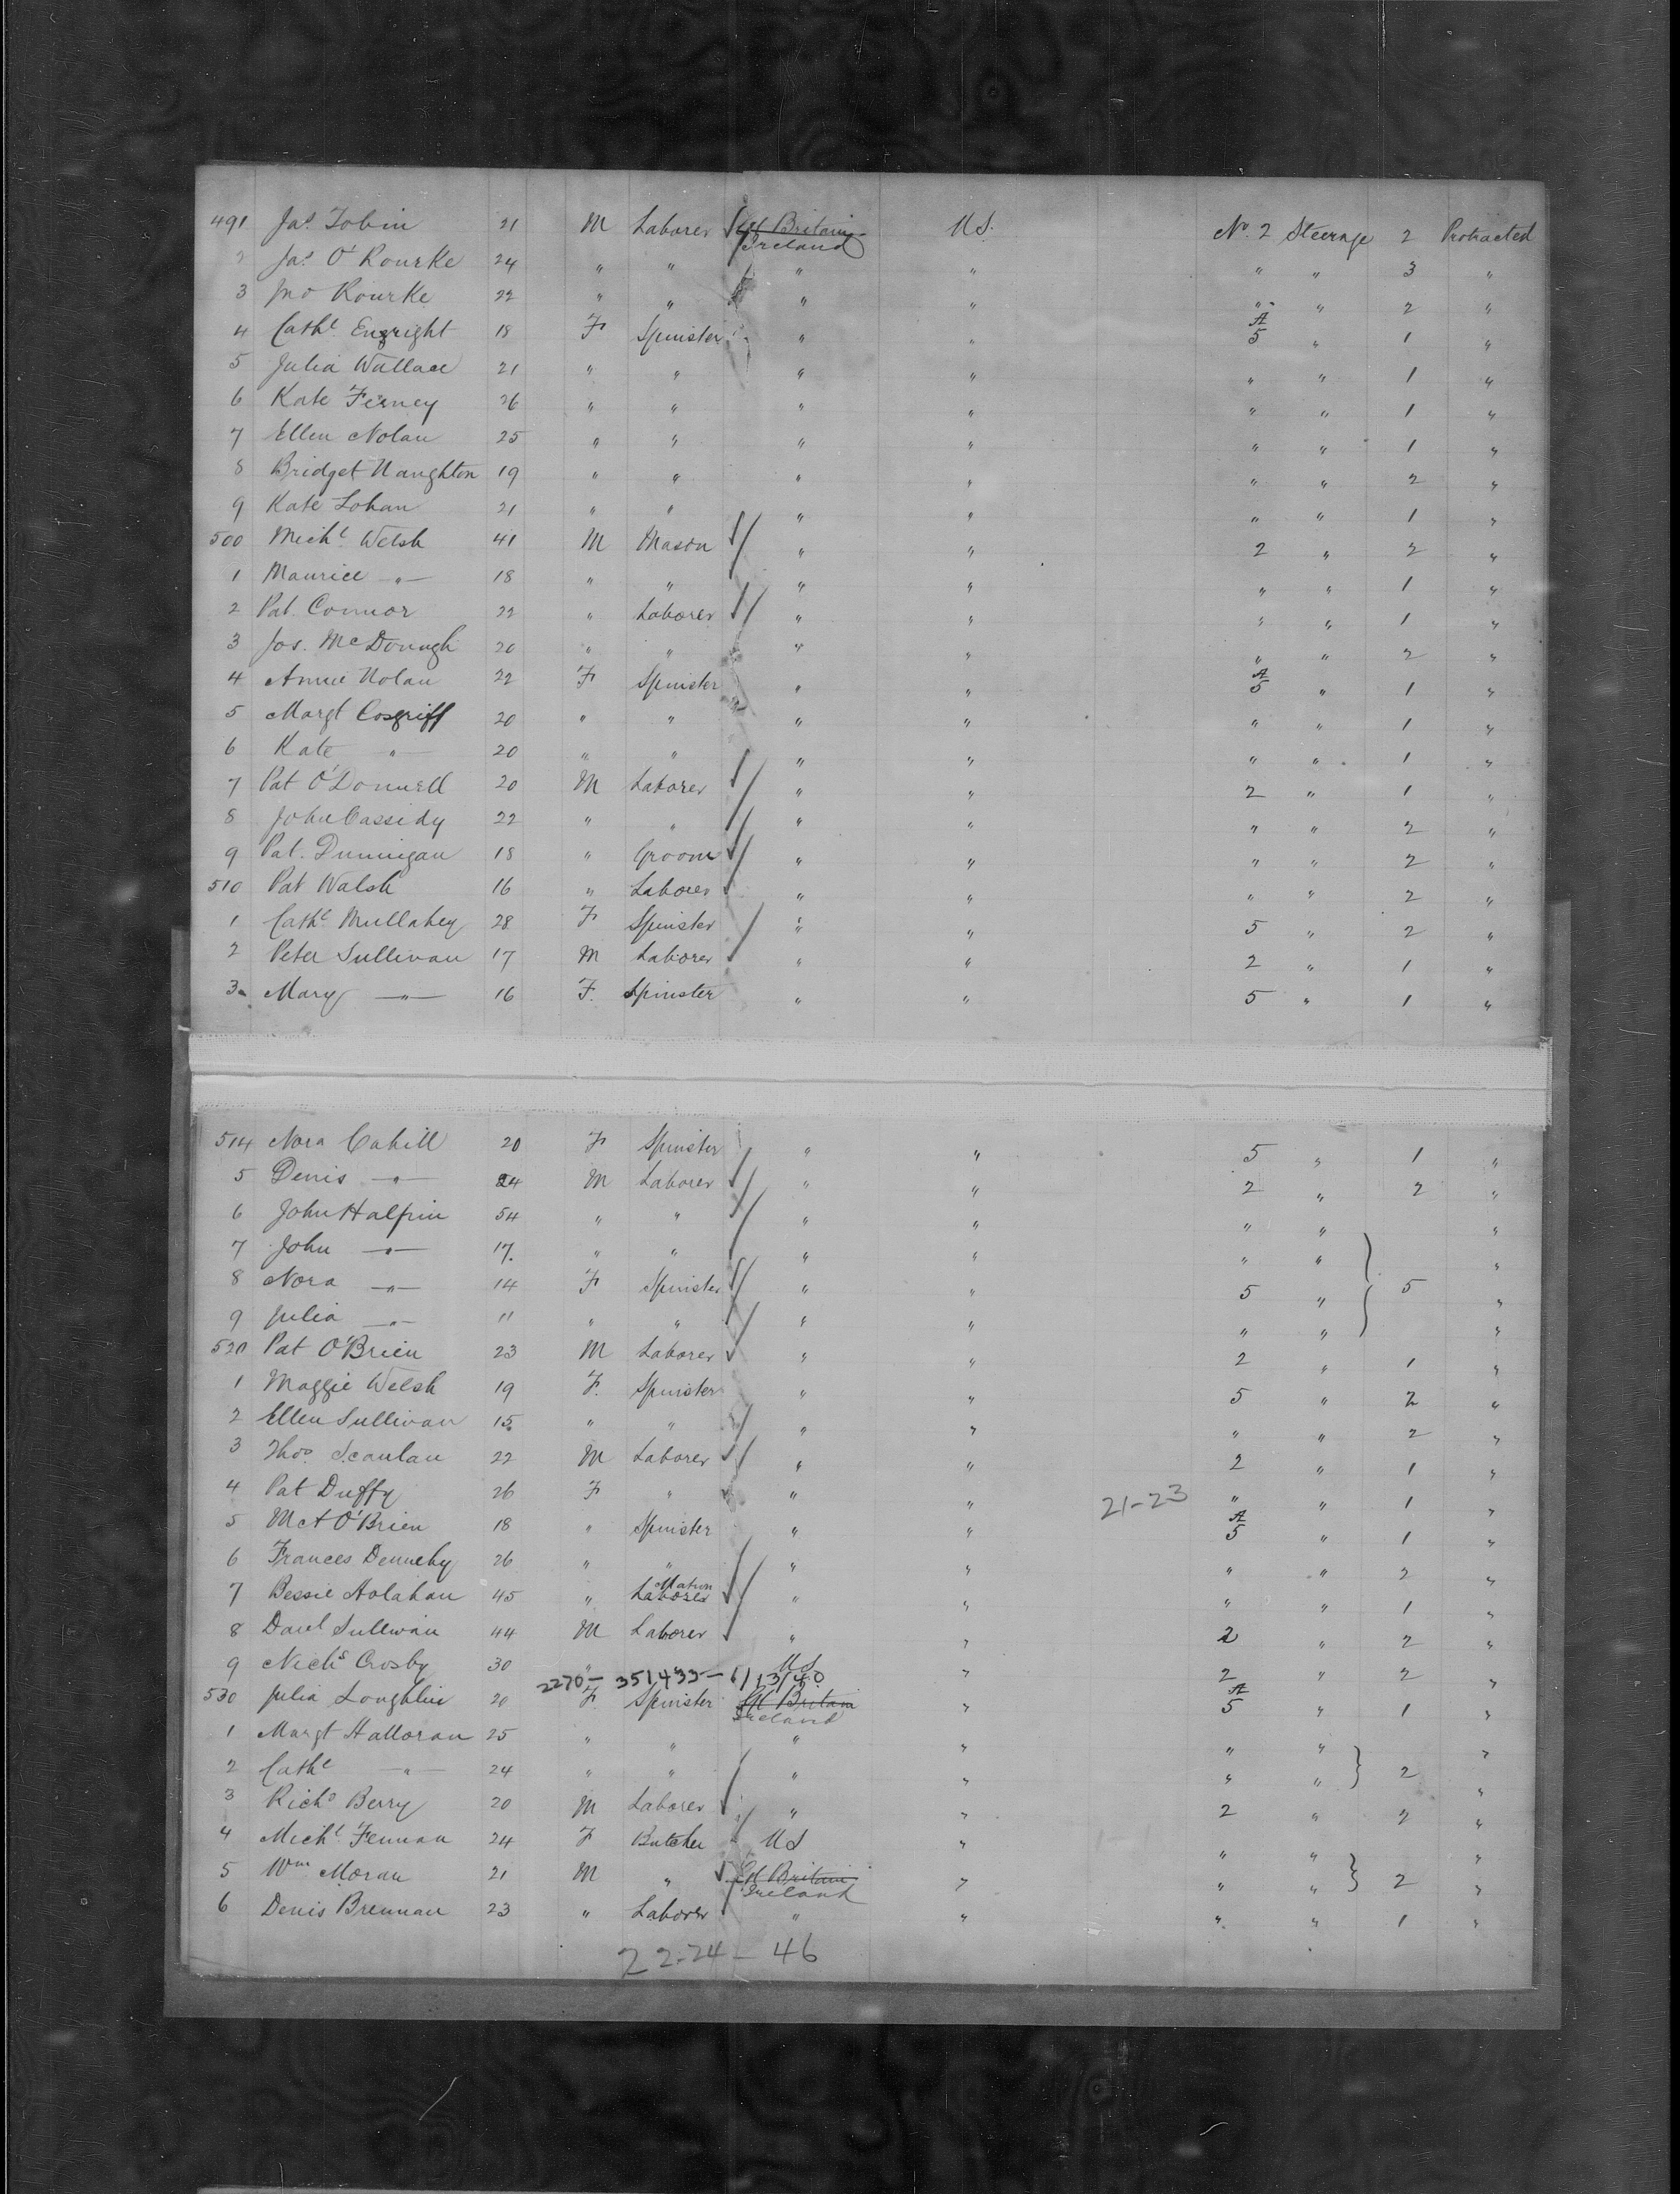 491 Jas Tobin 21 M Laborer Gt Britain Ireland U S. No. 2 Steerage 2 Protracted
2 Jas O'Rourke 24 " " " " " " 3 "
3 Jno Rourke 22 " " " " " " 2 "
4 Cathe Enright 18 F Spinster " " A 5 " 1 "
5 Julia Wallace 21 " " " " " " 1 "
6 Kate Ferney 26 " " " " " " 1 "
7 Ellen Nolan 25 " " " " " " 1 "
8 Bridget Naughton 19 " " " " " " 2 "
9 Kate Lohan 21 " " " " " " 1 "
500 Michl Welsh 41 M Mason " " 2 " 2 "
1 Maurice " 18 " " " " " " 1 "
2 Pat. Connor 22 " Laborer " " " " 1 "
3 Jos. McDonugh 20 " " " " " " 2 "
4 Annie Nolan 22 F Spinster " " A 5 " 1 "
5 Margt Cosgriff 20 " " " " " " 1 "
6 Kate " 20 " " " " " " 1 "
7 Pat O'Donnell 20 M Laborer " " 2 " 1 "
8 John Cassidy 22 " " " " " " 2 "
9 Pat. Dunnigan 18 " Groom " " " " 2 "
510 Pat Walsh 16 " Laborer " " " " 2 "
1 Cathe Mullahey 28 F Spinster " " 5 " 2 "
2 Peter Sullivan 17 M Laborer " " 2 " 1 "
3 Mary " 16 F. Spinster " " 5 " 1 "
514 Nora Cahill 20 F Spinster " " 5 " 1 "
5 Denis " 24 M Laborer " " 2 " 2 "
6 John Halpin 54 " " " " " " "
7 John " 17. " " " " " " "
8 Nora " 14 F Spinster " " 5 " 5 "
9 Julia " 11 " " " " " " "
520 Pat O'Brien 23 M Laborer " " 2 " 1 "
1 Maggie Welsh 19 F. Spinster " " 5 " 2 "
2 Ellen Sullivan 15 " " " " " " 2 "
3 Thos. Scanlan 22 M Laborer " " 2 " 1 "
4 Pat Duffy 26 F " " " 21-23 " " 1 "
5 Mct O'Brien 18 " Spinster " " A 5 " 1 "
6 Frances Dennehy 26 " " " " " " 2 "
7 Bessie Holahan 45 " Laborer Matron " " " " 1 "
8 Danl Sullivan 44 M Laborer " " 2 " 2 "
9 Nichs Crosby 30 " U S " 2 " 2 "
2270- 351433- 6/13/40
530 Julia Loughlin 20 F. Spinster Gt Britain Ireland " A 5 " 1 "
1 Margt Halloran 25 " " " " " " "
2 Cathe " 24 " " " " " " 2 "
3 Richd Berry 20 M Laborer " " 2 " 2 "
4 Michl Fennan 24 F Butcher U S " " " "
5 Wm Moran 21 M " Gt Britain Ireland " " " 2 "
6 Denis Brennan 23 " Laborer " " " " 1 "
22-24-46